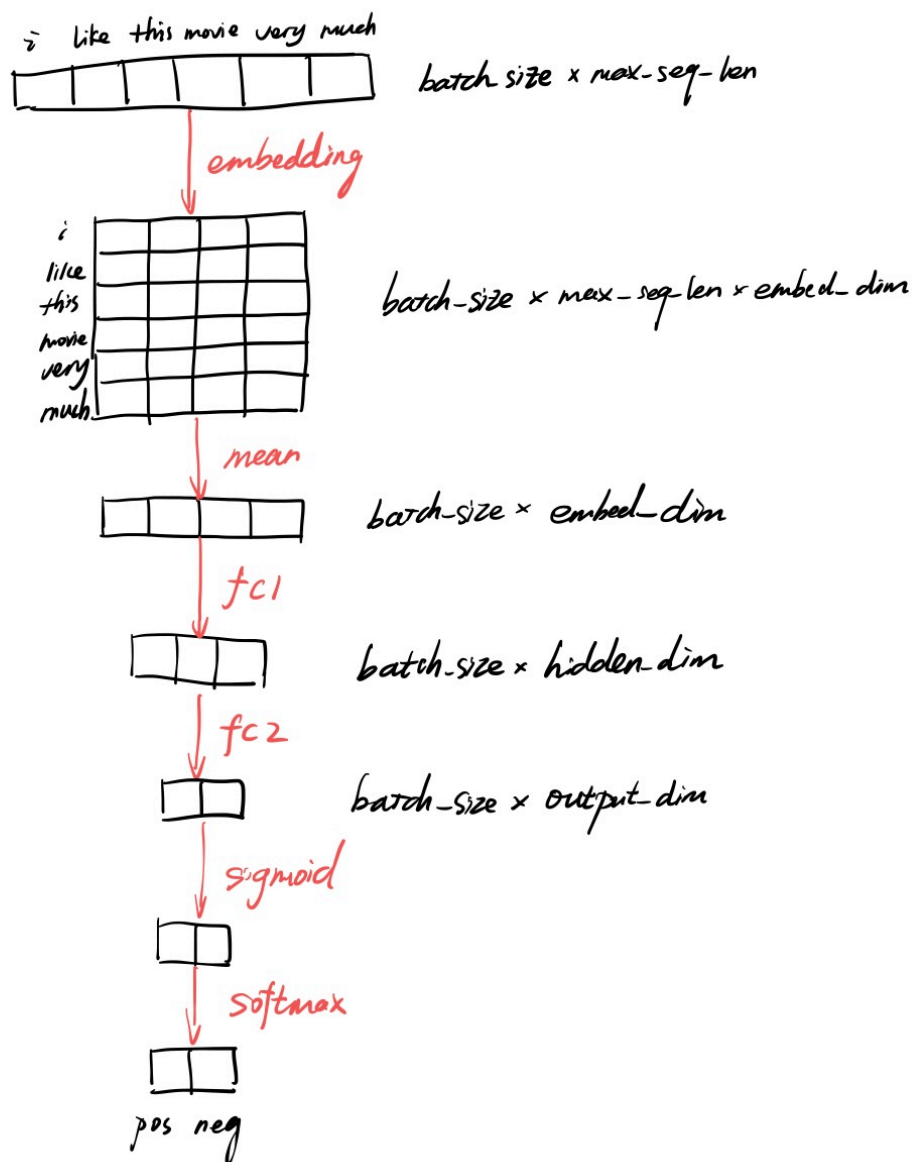 i like this movie very much
batch size × max-seq-len
embedding
i
like
this
movie
very
much
batch-size × max-seq-len × embed-dim
mean
batch-size × embed-dim
fc1
batch-size × hidden-dim
fc2
batch-size × output-dim
sigmoid
softmax
pos neg